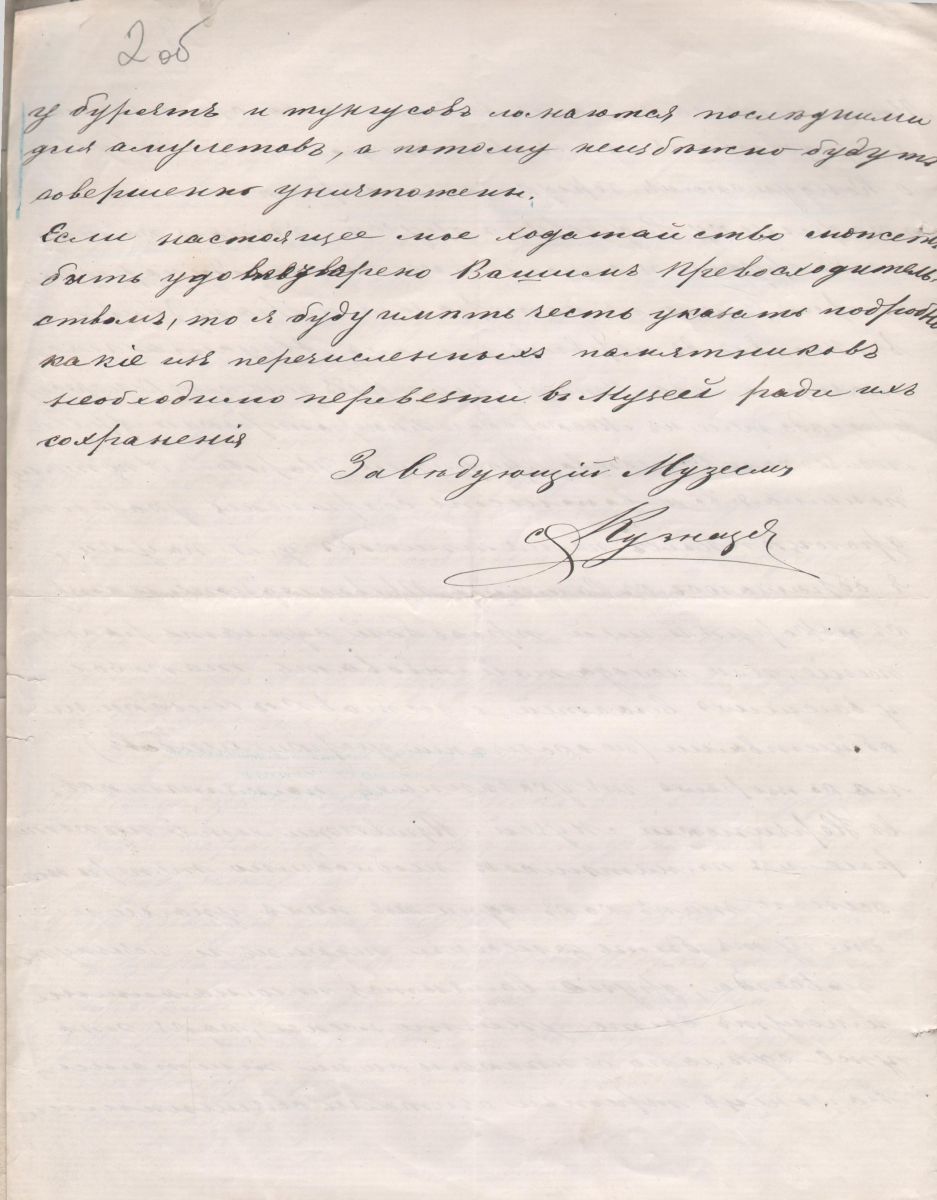 2 об
у бурятъ и тунгусовъ ломаются послѣдними
для амулетовъ, а потому неизбѣжно будутъ
совершенно уничтожены.
Если настоящее мое ходатайство можетъ
быть удовлетворено Вашимъ Превосходитель-
ствомъ, то я буду имѣть честь указать подробно
какіе изъ перечисленныхъ памятниковъ
необходимо перевезти въ Музей ради ихъ
сохраненія
Завѣдующій Музеемъ
Кузнецов